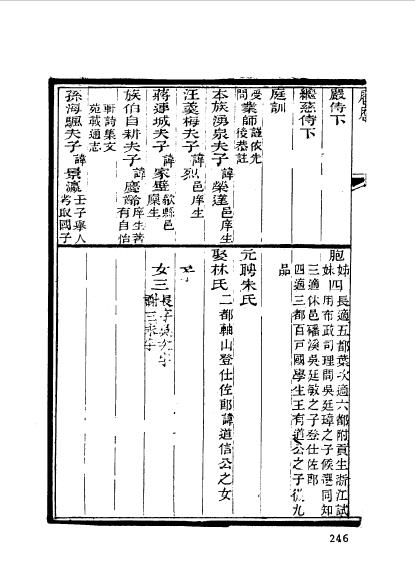 嚴侍下
繼慈侍下
庭訓
受業師謹依先
問後恭註
本族湧泉夫子諱榮達邑庠生
汪羹梅夫子諱烈邑庠生
蔣運城夫子諱家璧歙縣邑
廩生
族伯自耕夫子諱慶齡庠生著
有自怡
軒詩集文
苑載通志
孫海颿夫子諱景瀛壬子舉人
考取國子
胞姊
妹四長適五都葉次適六都附貢生浙江試
用布政司理問吳廷璋之子候選同知
三適休邑磻溪吳廷敏之子登仕佐郎
四適三都百戸國學生王有道公之子從九
品
元聘朱氏
娶林氏二都軸山登仕佐郎諱道信公之女
子
女三
246